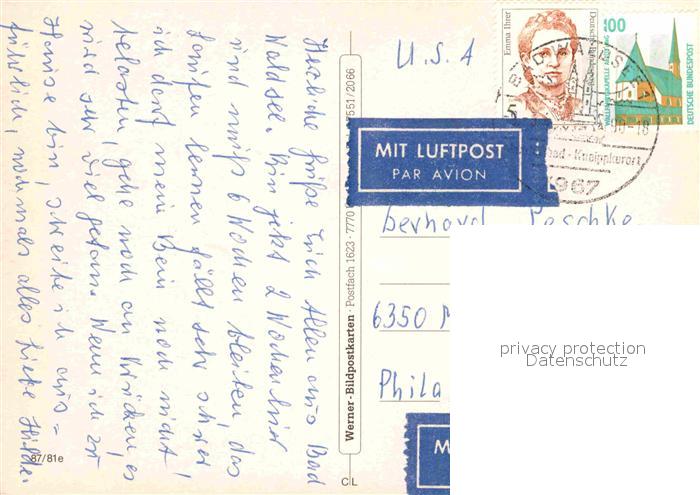 Herzliche Grüße Euch Allen aus Bad
Waldsee. Bin jetzt 2 Wochen hier
und muß 6 Wochen bleiben, das
Laufen lernen fällt sehr schwer
ich darf mein Bein noch nicht
belasten, gehe noch an Krücken, es
wird sehr viel getan. Wenn ich zu
Hause bin, schreibe ich aus=
führlich, nochmals alles Liebe Hilde.
87/81e
Werner-Bildpostkarten · Postfach 1623 · 7770
7551/2066
CL
U.S.A
Emma Ihrer
Deutsche Bundespost
100
DEUTSCHE BUNDESPOST
Kneippkurort
7967
MIT LUFTPOST
PAR AVION
Gerhard Peschke
6350
Phila
M
privacy protection
Datenschutz